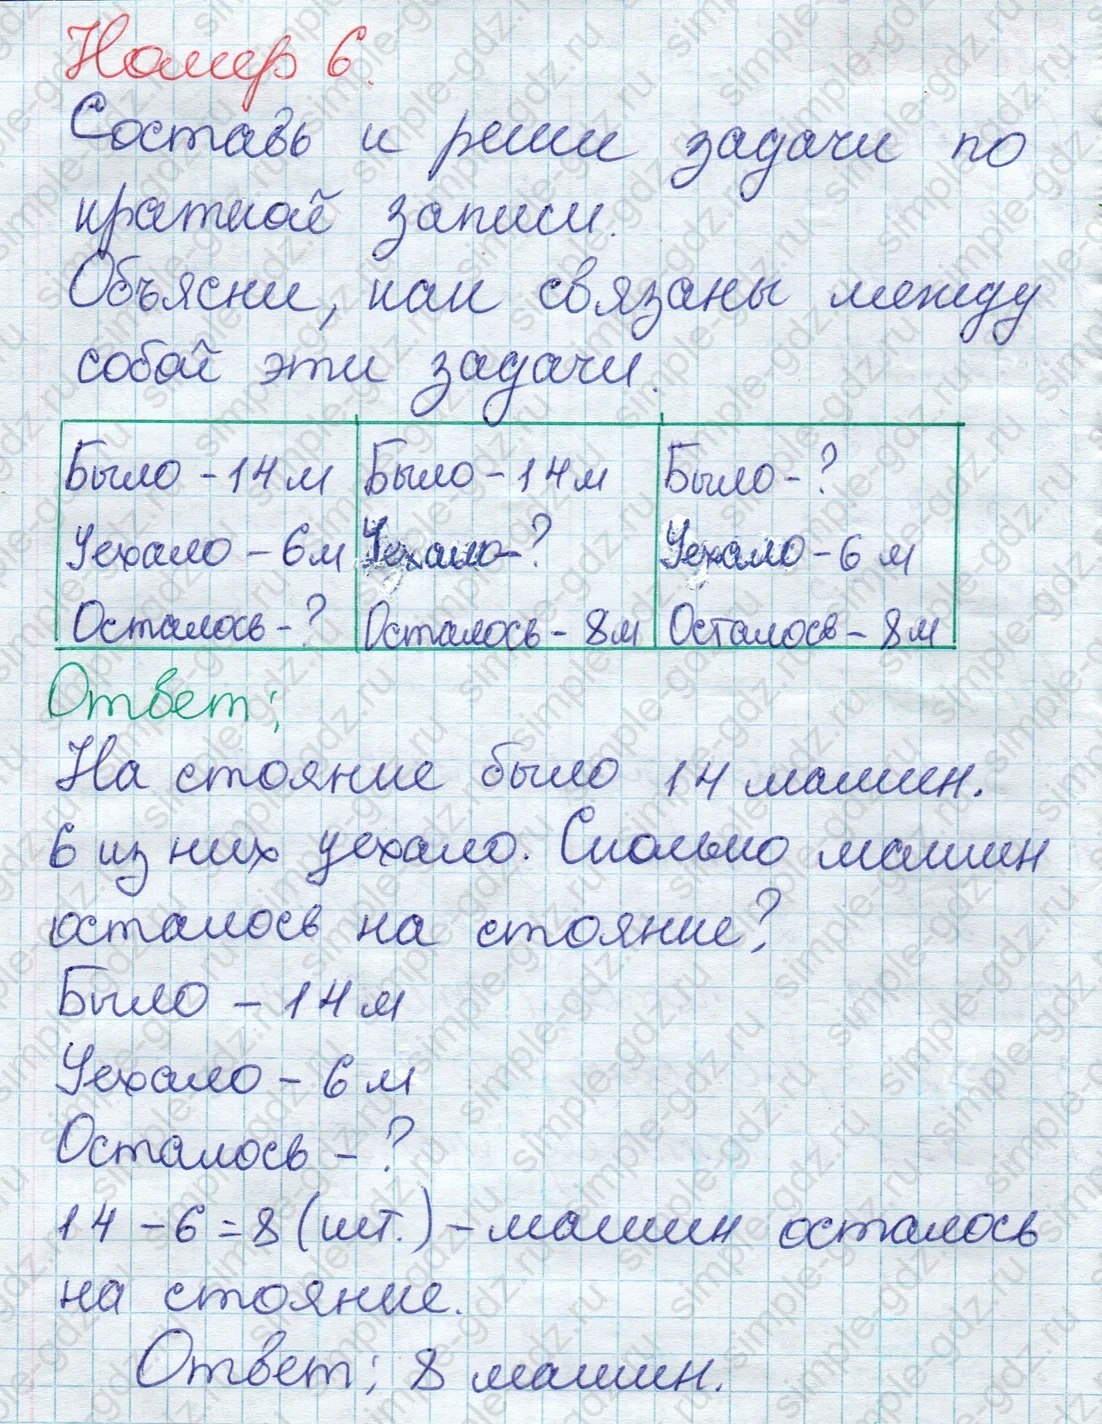 Номер 6.
Составь и реши задачи по
краткой записи.
Объясни, как связаны между
собой эти задачи.
Было - 14 м Было - 14 м Было - ?
Уехало - 6 м Уехало - ? Уехало - 6 м
Осталось - ? Осталось - 8 м Осталось - 8 м
Ответ:
На стояние было 14 машин.
6 из них уехало. Сколько машин
осталось на стояние?
Было - 14 м
Уехало - 6 м
Осталось - ?
14 - 6 = 8 (шт.) - машин осталось
на стояние.
Ответ: 8 машин.
simple-gdz.ru